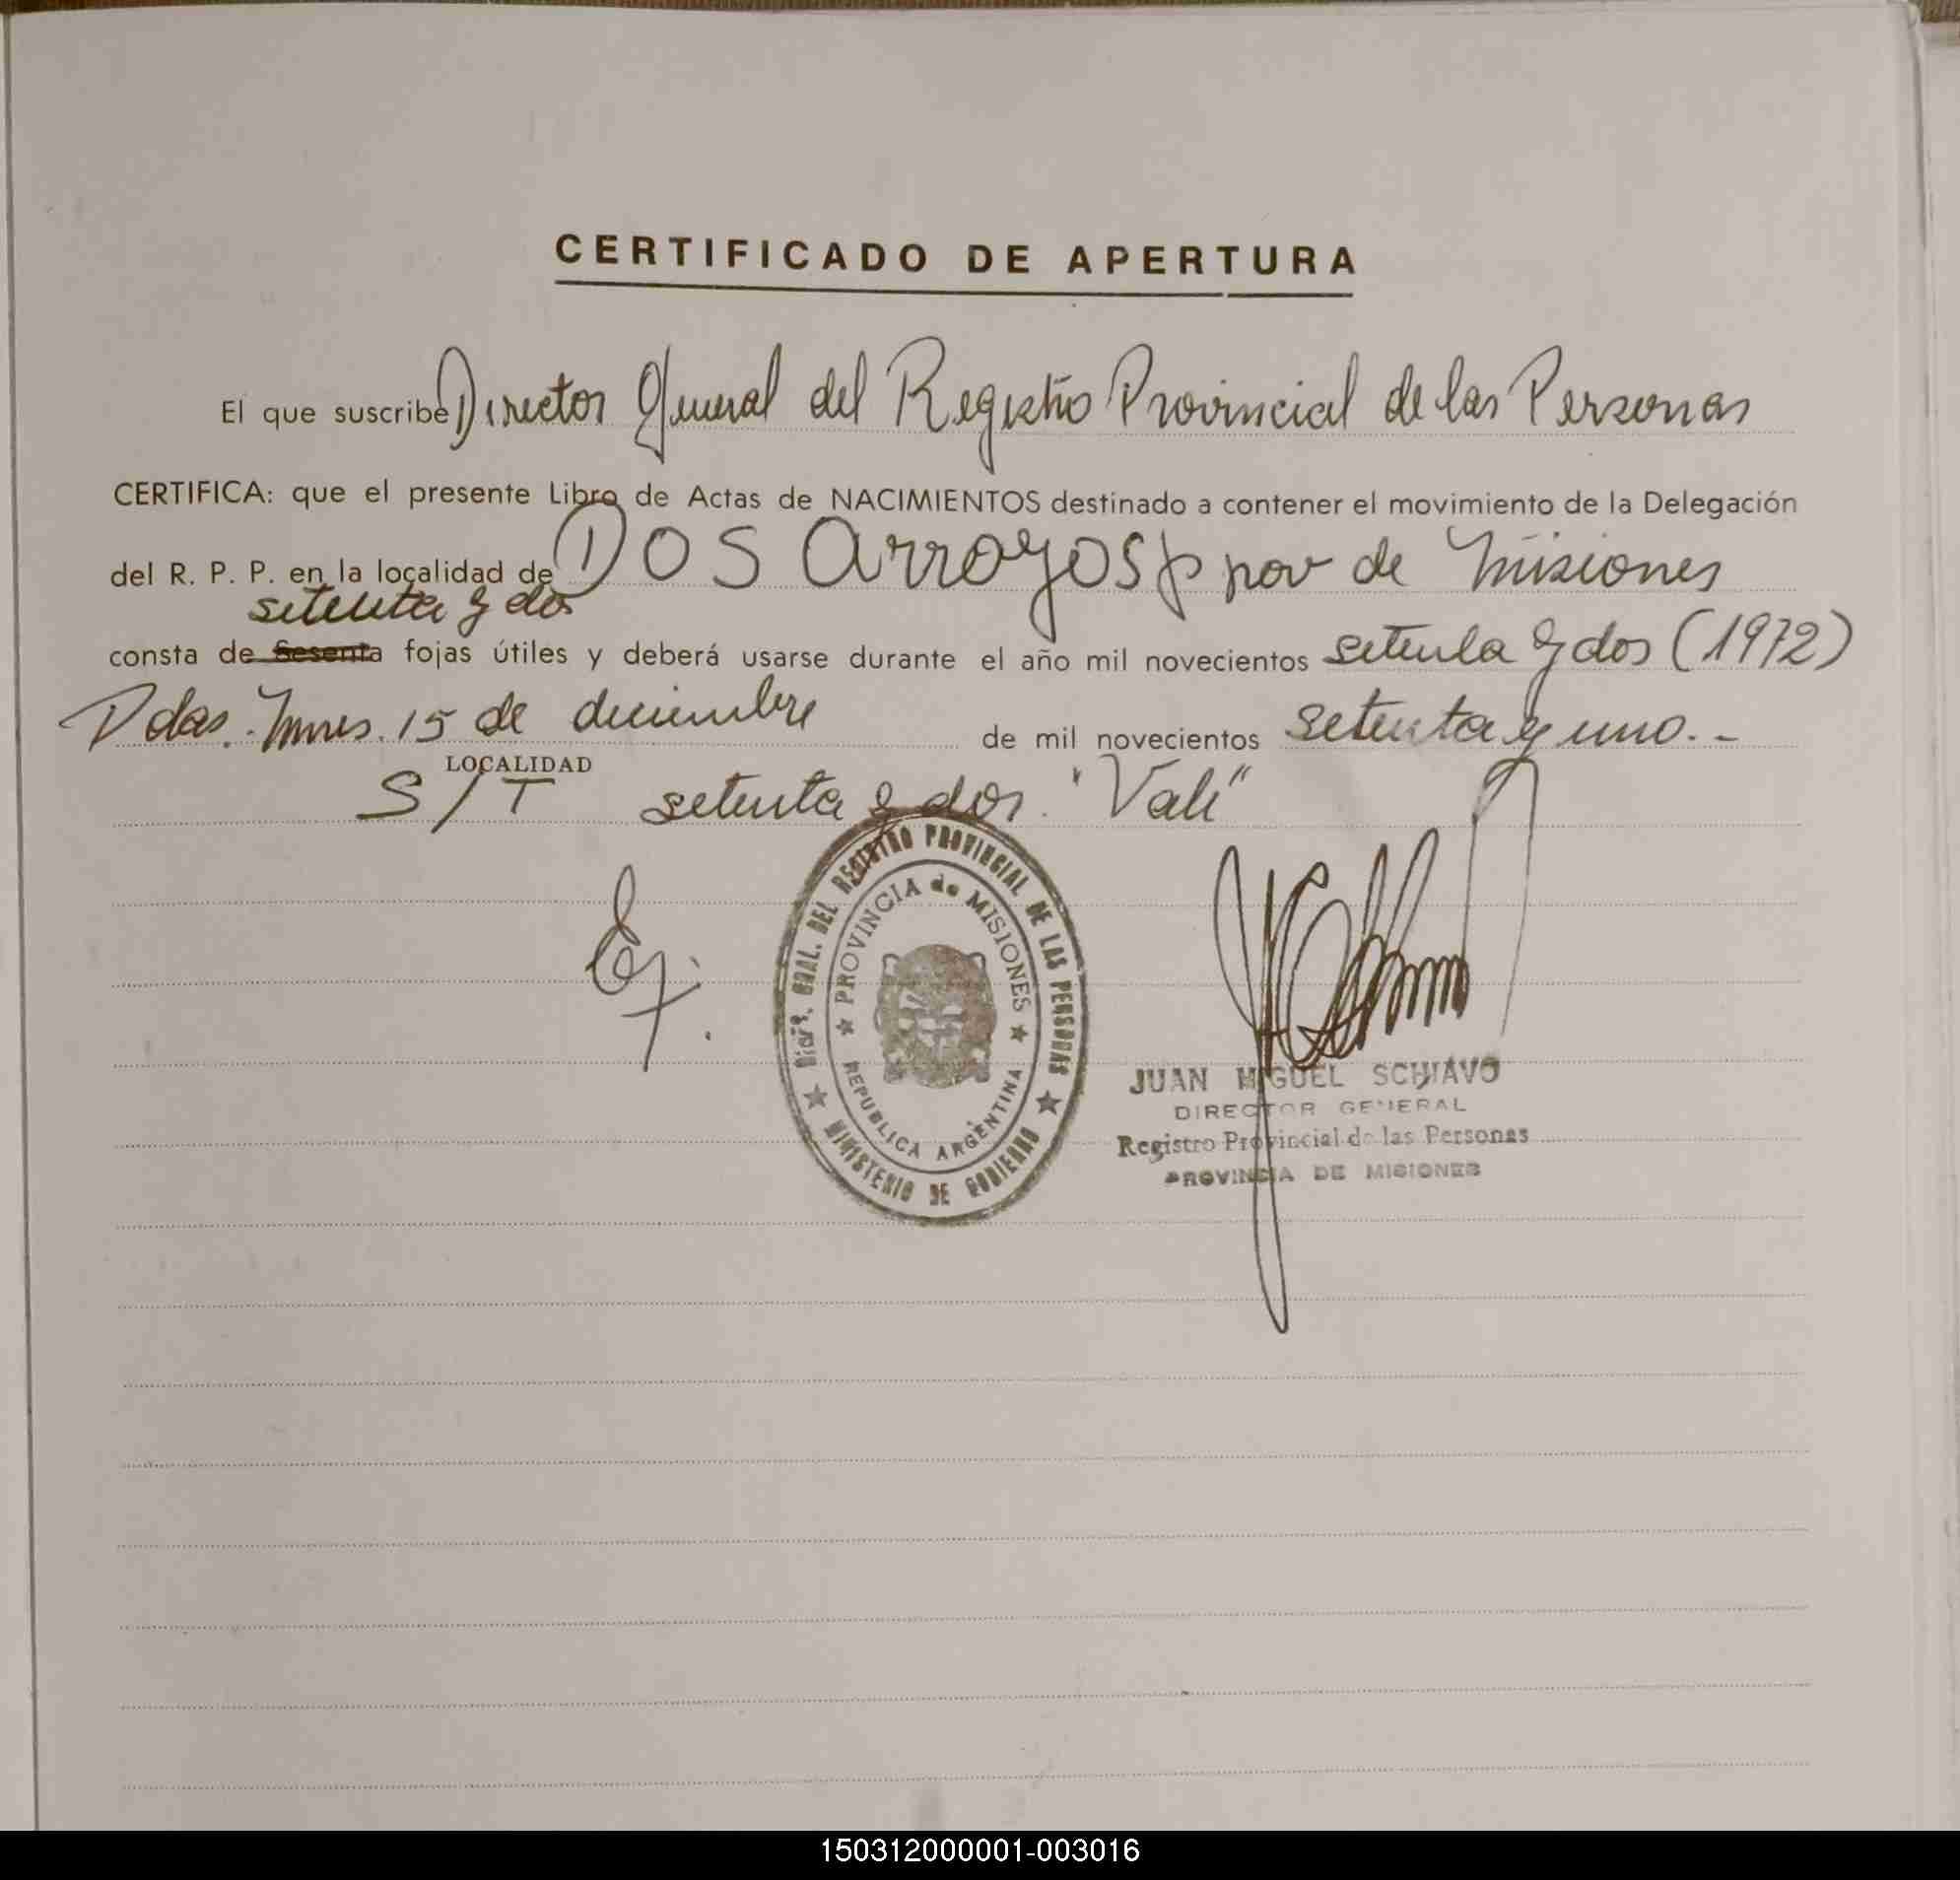 CERTIFICADO DE APERTURA
El que suscribe Director General del Registro Provincial de las Personas
CERTIFICA: que el presente Libro de Actas de NACIMIENTOS destinado a contener el movimiento de la Delegación
del R. P. P. en la localidad de Dos Arroyos de Misiones
setenta y dos
consta de Sesenta fojas útiles y deberá usarse durante el año mil novecientos setenta y dos (1972)
Pdas. Mnes. 15 de diciembre de mil novecientos setenta y uno.-
LOCALIDAD
S/T setenta y dos. "Vale"
Dicic. GRAL. DEL REGISTRO PROVINCIAL DE LAS PERSONAS
PROVINCIA de MISIONES
REPUBLICA ARGENTINA
MINISTERIO DE GOBIERNO
JUAN MIGUEL SCHIAVO
DIRECTOR GENERAL
Registro Provincial de las Personas
PROVINCIA DE MISIONES
150312000001-003016